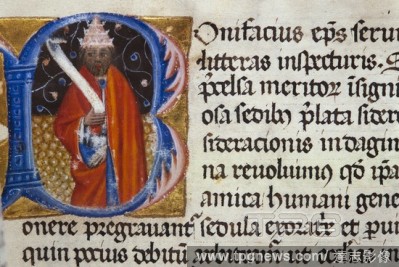 Bonifacius ep̄s seru
litteras inspecturis. S
p̄celsa meritor īsigni
osa sedibꝰ p̄lata sider
sideracionis indagin
na reuoluimꝰ qd̄ ip̄a
amica humani gene
onere pregrauant sedula exorār et pui
quin pocius debitū
www.tpgnews.com/達志影像